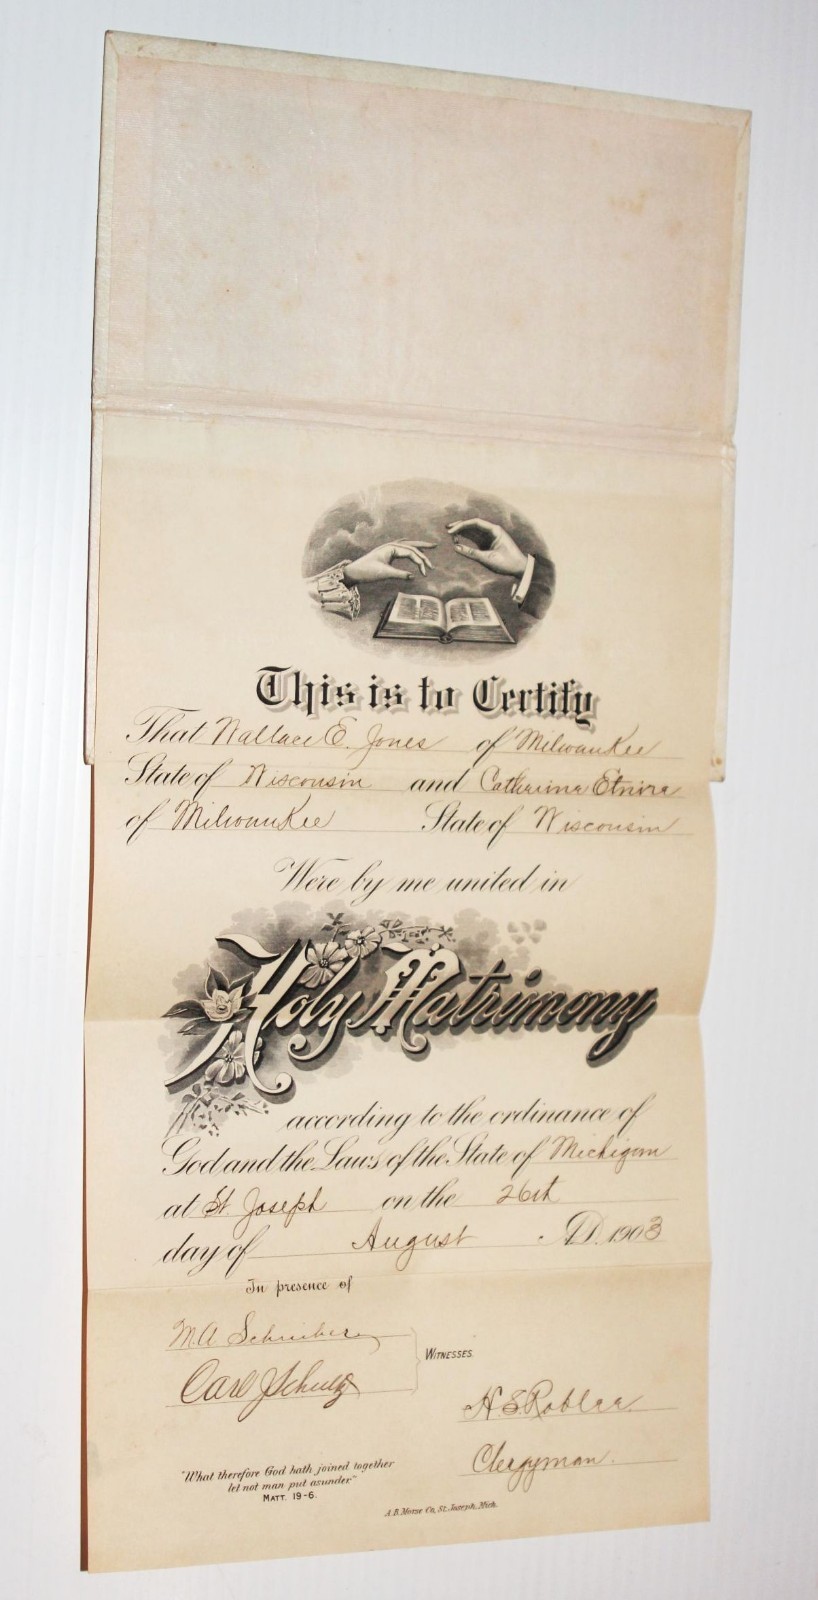 This is to Certify
That Wallace E. Jones of Milwaukee
State of Wisconsin and Catharina Etnira
of Milwaukee State of Wisconsin
Were by me united in
Holy Matrimony
according to the ordinance of
God and the Laws of the State of Michigan
at St. Joseph on the 26th
day of August A.D. 1903
In presence of
M.A. Schreiber
Carl J Schulz
WITNESSES.
H. S. Roblee
Clergyman.
"What therefore God hath joined together
let not man put asunder"
MATT. 19-6.
A.B. Morse Co, St. Joseph, Mich.